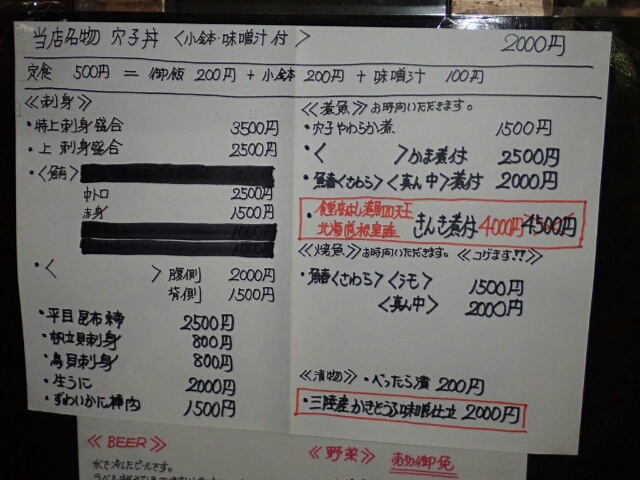 当店名物 穴子丼 〈小鉢・味噌汁付〉 2000円
定食 500円 = 御飯 200円 + 小鉢 200円 + 味噌汁 100円
≪刺身≫
・特上刺身盛合 3500円
・上 刺身盛合 2500円
・〈鮪〉
中トロ 2500円
赤身 1500円
・〈 〉腹側 2000円
背側 1500円
・平目昆布〆 2500円
・帆立貝刺身 800円
・鳥貝刺身 800円
・生うに 2000円
・ずわいかに棒肉 1500円
≪煮魚≫お時間いただきます。
・穴子やわらか煮 1500円
・〈 〉かま煮付 2500円
・鰆〈さわら〉〈真ん中〉煮付 2000円
・煮魚四天王
北海道根室産 きんき煮付 4000円 4500円
≪焼魚≫お時間いただきます。≪コゲます!!≫
・鰆〈さわら〉〈シモ〉 1500円
〈真ん中〉 2000円
≪漬物≫・べったら漬 200円
・三陸産かきとうふ味噌仕立 2000円
≪BEER≫
氷で冷したビールです。
≪野菜≫ 売切御免